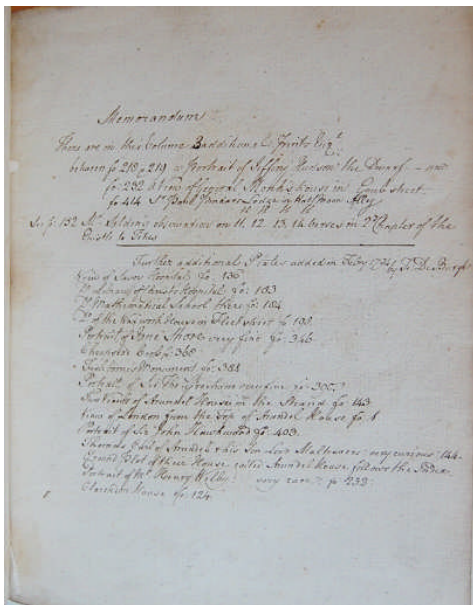 Memorandum
There are in this Volume 3 additional Prints Viz.t
between fo: 218 & 219 a Portrait of Jeffery Hudson the Dwarf — and
fo: 232 a View of General Monk's house in Grub street
fo 414 Sr. Paul Pindars Lodge in Half Moon Alley
See fo: 132 Mr. Selden's observation on 11, 12, 13, 14 Verses in 2d Chapter of the
Epistle to Titus
Further additional Plates added in Feb.ry 1741 by Fr. De Burgh
View of Savoy Hospital fo: 136
Do. of Christ's Hospital fo: 183
Do. Mathematical School there fo: 184
Do. of the House in Fleet street fo 198
Portrait of Jane Shore very fine fo: 346
Cheapside Cross fo 366
Monument fo: 388
Portrait of Sir Tho. Gresham very fine fo:
Two Views of Arundel House in the Strand fo: 143
View of London from the Top of Arundel House fo 1
Portrait of Sir John Hawkwood fo: 403.
Thomas E. of Arundel & his Son Lord Maltravers very curious 144.
Ground Plot of these House called Arundel House follows the Index.
Portrait of Mr. Henry Welby very rare fo 233
Clarendon House fo 124